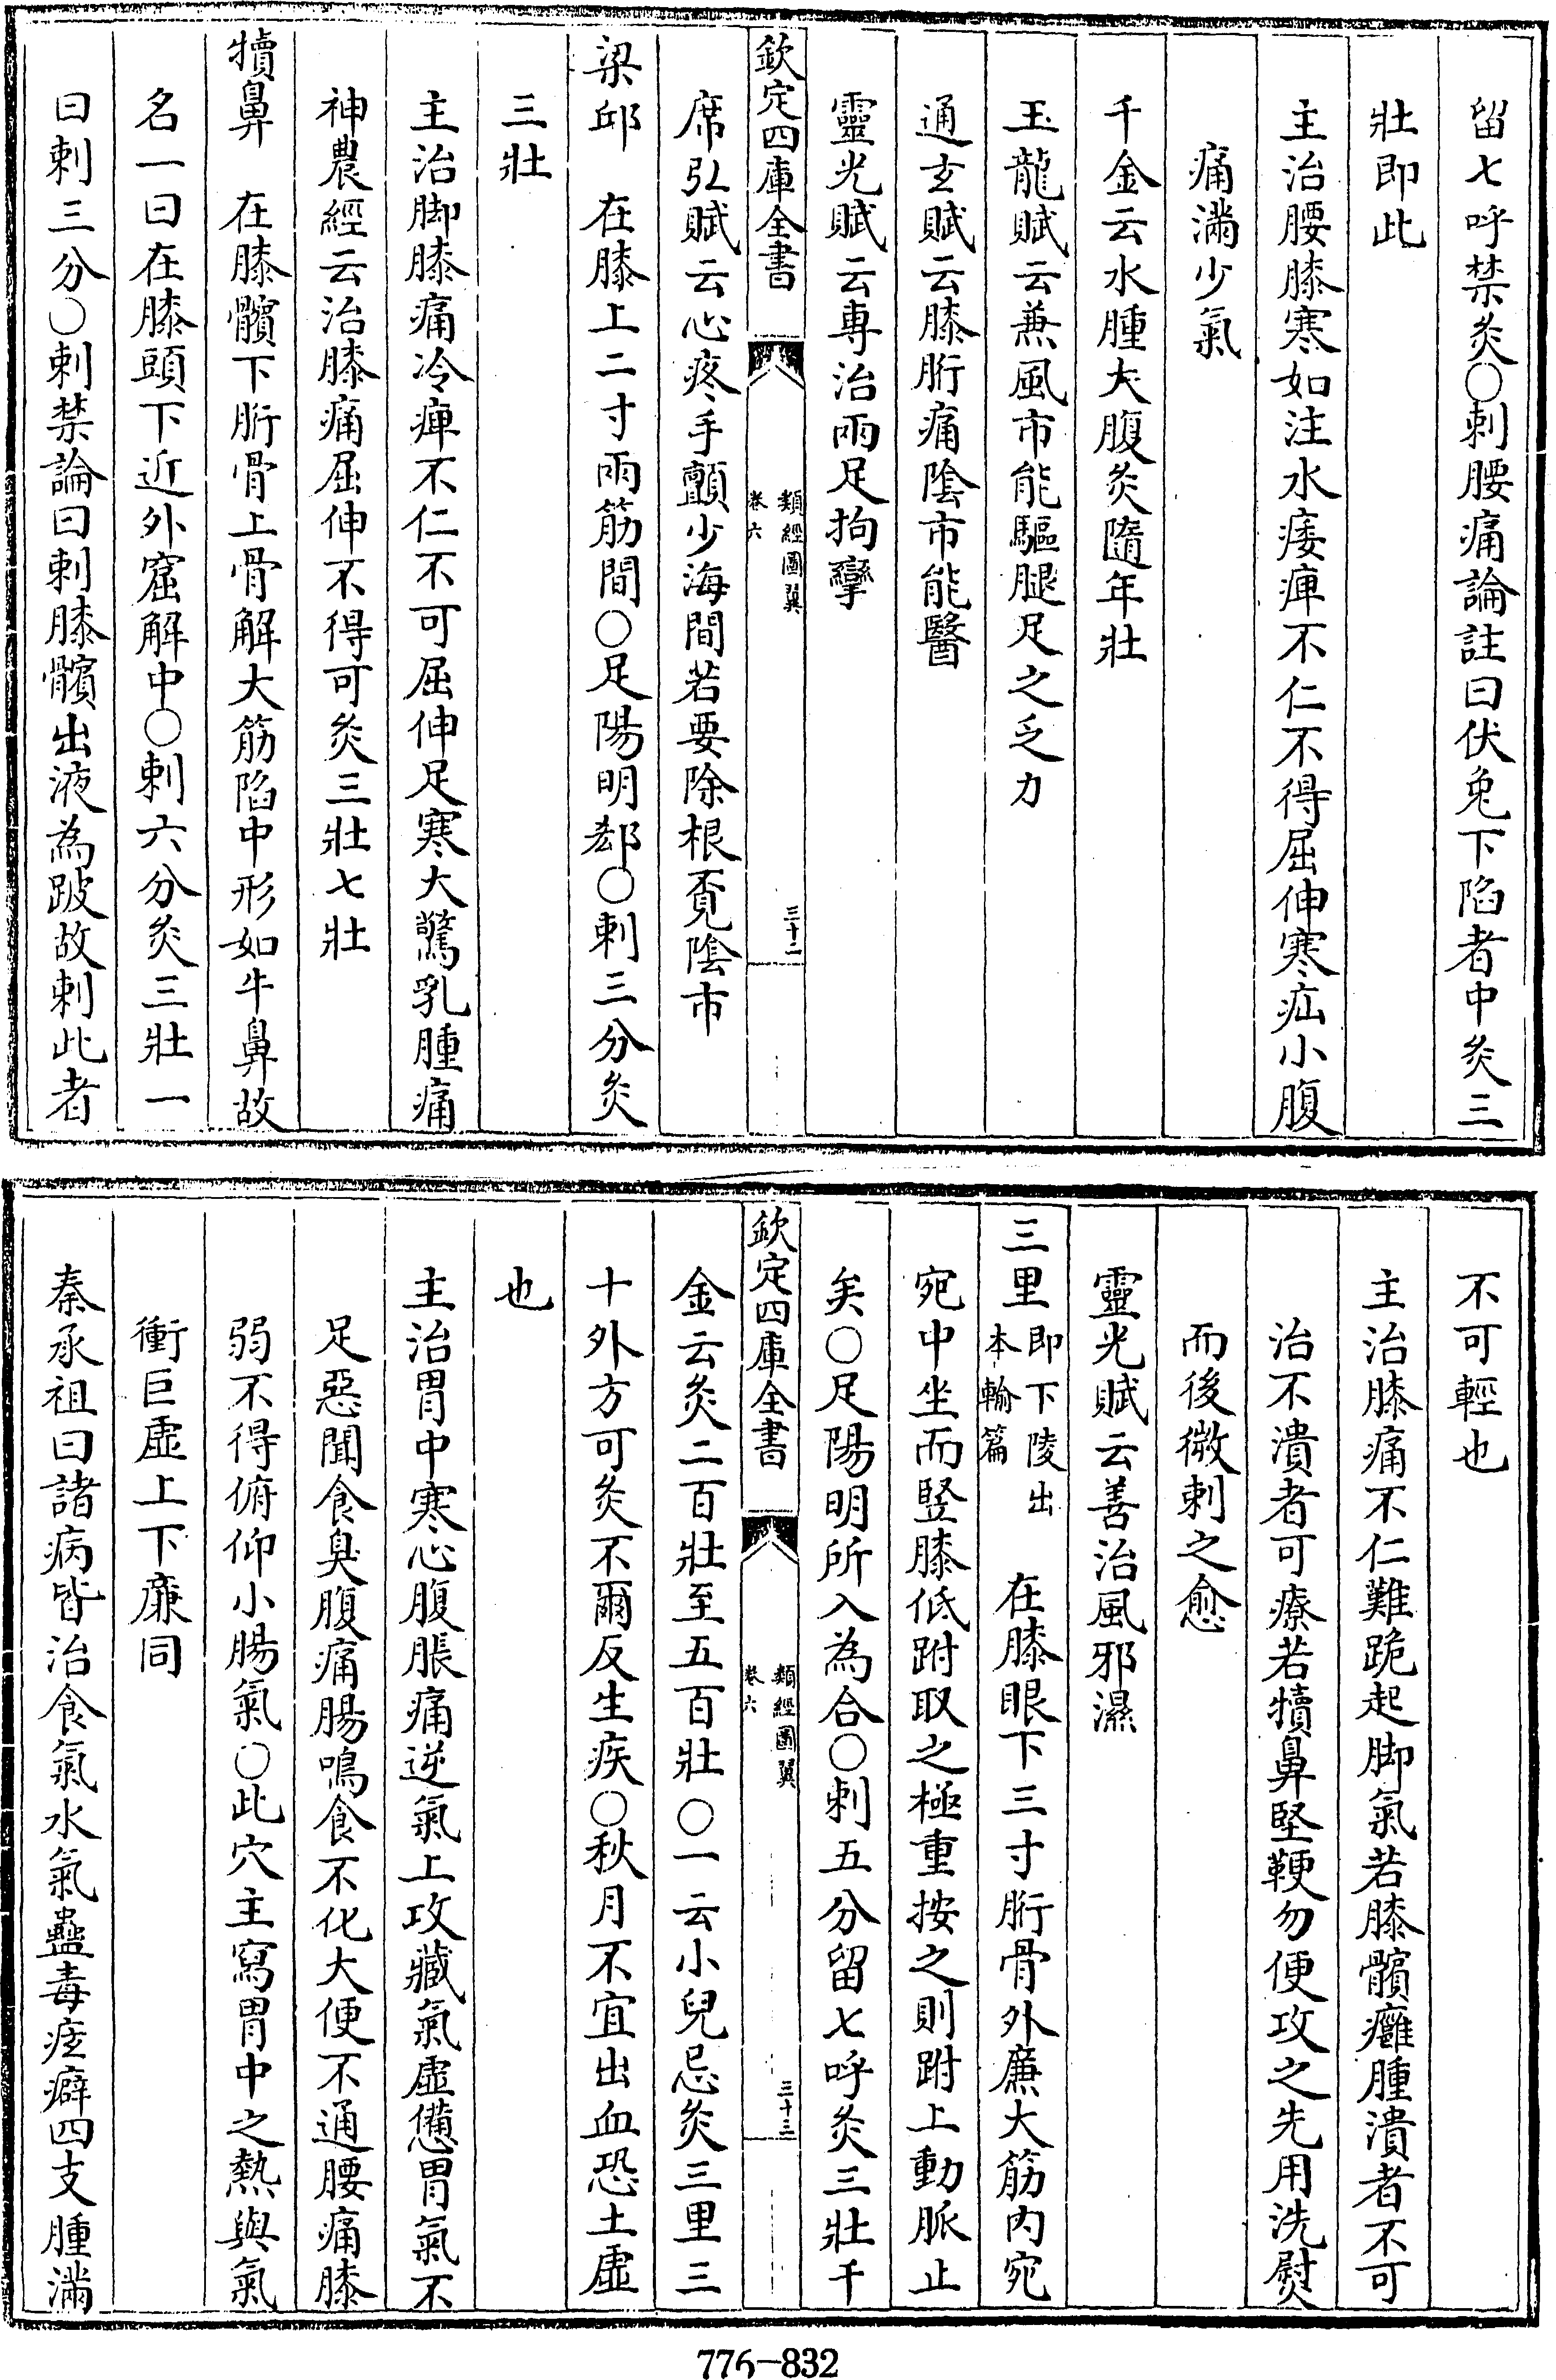 留七呼禁灸○刺腰痛論註曰伏兔下陷者中灸三
壯即此
主治腰膝寒如注水痿痺不仁不得屈伸寒疝小腹
痛滿少氣
千金云水腫大腹灸隨年壯
玉龍賦云兼風市能驅腿足之乏力
通玄賦云膝胻痛陰市能醫
靈光賦云專治兩足拘攣
欽定四庫全書
類經圖翼
卷六
三十二
席弘賦云心疼手顫少海間若要除根覔陰市
梁邱 在膝上二寸兩筋間○足陽明郄○刺三分灸
三壯
主治脚膝痛冷痺不仁不可屈伸足寒大驚乳腫痛
神農經云治膝痛屈伸不得可灸三壯七壯
犢鼻 在膝髕下胻骨上骨解大筋陷中形如牛鼻故
名一曰在膝頭下近外窟解中○刺六分灸三壯一
曰刺三分○刺禁論曰刺膝髕出液為跛故刺此者
不可輕也
主治膝痛不仁難跪起脚氣若膝髕癰腫潰者不可
治不潰者可療若犢鼻堅鞕勿便攻之先用洗熨
而後微刺之愈
靈光賦云善治風邪濕
三里 即下陵出本輸篇 在膝眼下三寸胻骨外廉大筋內宛
宛中坐而竪膝低跗取之極重按之則跗上動脈止
矣○足陽明所入為合○刺五分留七呼灸三壯千
欽定四庫全書
類經圖翼
卷六
三十三
金云灸二百壯至五百壯○一云小兒忌灸三里三
十外方可灸不爾反生疾○秋月不宜出血恐土虛
也
主治胃中寒心腹脹痛逆氣上攻藏氣虛憊胃氣不
足惡聞食臭腹痛腸鳴食不化大便不通腰痛膝
弱不得俯仰小腸氣○此穴主寫胃中之熱與氣
衝巨虛上下廉同
秦承祖曰諸病皆治食氣水氣蠱毒痃癖四支腫滿
776-832